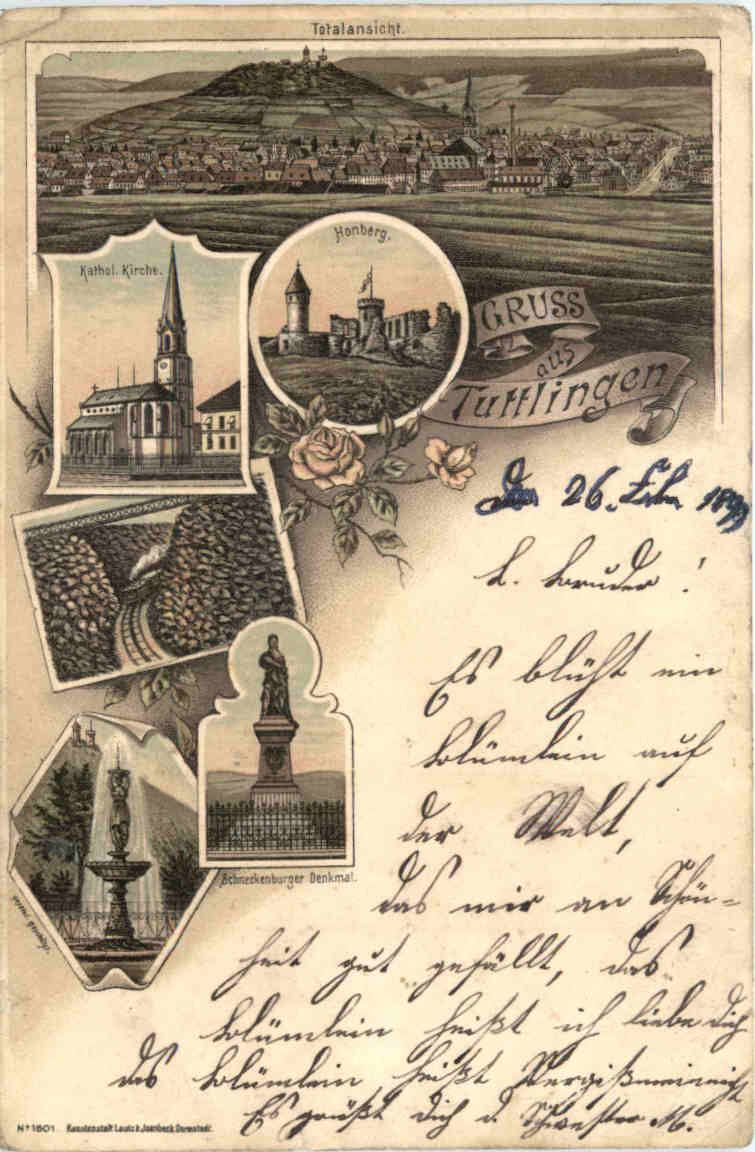 Totalansicht.
Kathol. Kirche.
Honberg.
GRUSS
aus
Tuttlingen
Den 26. Feb. 1899
L. Bruder!
Es blüht ein
Blümlein auf
der Welt,
das mir an Schön-
heit gut gefällt, das
Blümlein heißt ich liebe dich
das Blümlein heißt Vergißmeinnicht
Es grüßt dich d. Schwester M.
Schneckenburger Denkmal.
No 1601. Kunstanstalt Lautz & Isenbeck Darmstadt.